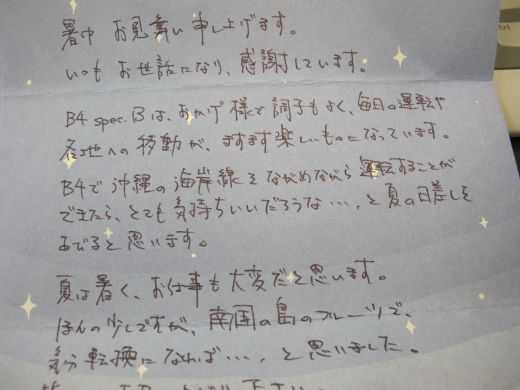 暑中 お見舞い申し上げます。
いつも お世話になり、感謝しています。
B4 spec.Bは、おかげ様で調子もよく、毎日の運転や
各地への移動が、ますます楽しいものになっています。
B4で沖縄の海岸線をながめながら運転することが
できたら、とても気持ちいいだろうな…、と夏の日差しを
あびると思います。
夏は暑く、お仕事も大変だと思います。
ほんの少しですが、南国の島のフルーツで、
気分転換になれば…、と思いました。